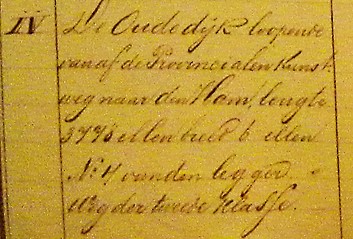 IV De Oude dijk loopende
vanaf de Provincialen Kunst-
weg naar den Ham, lengte
3775 ellen breed 6 ellen
No. 4 van den legger
Weg der tweede klasse.